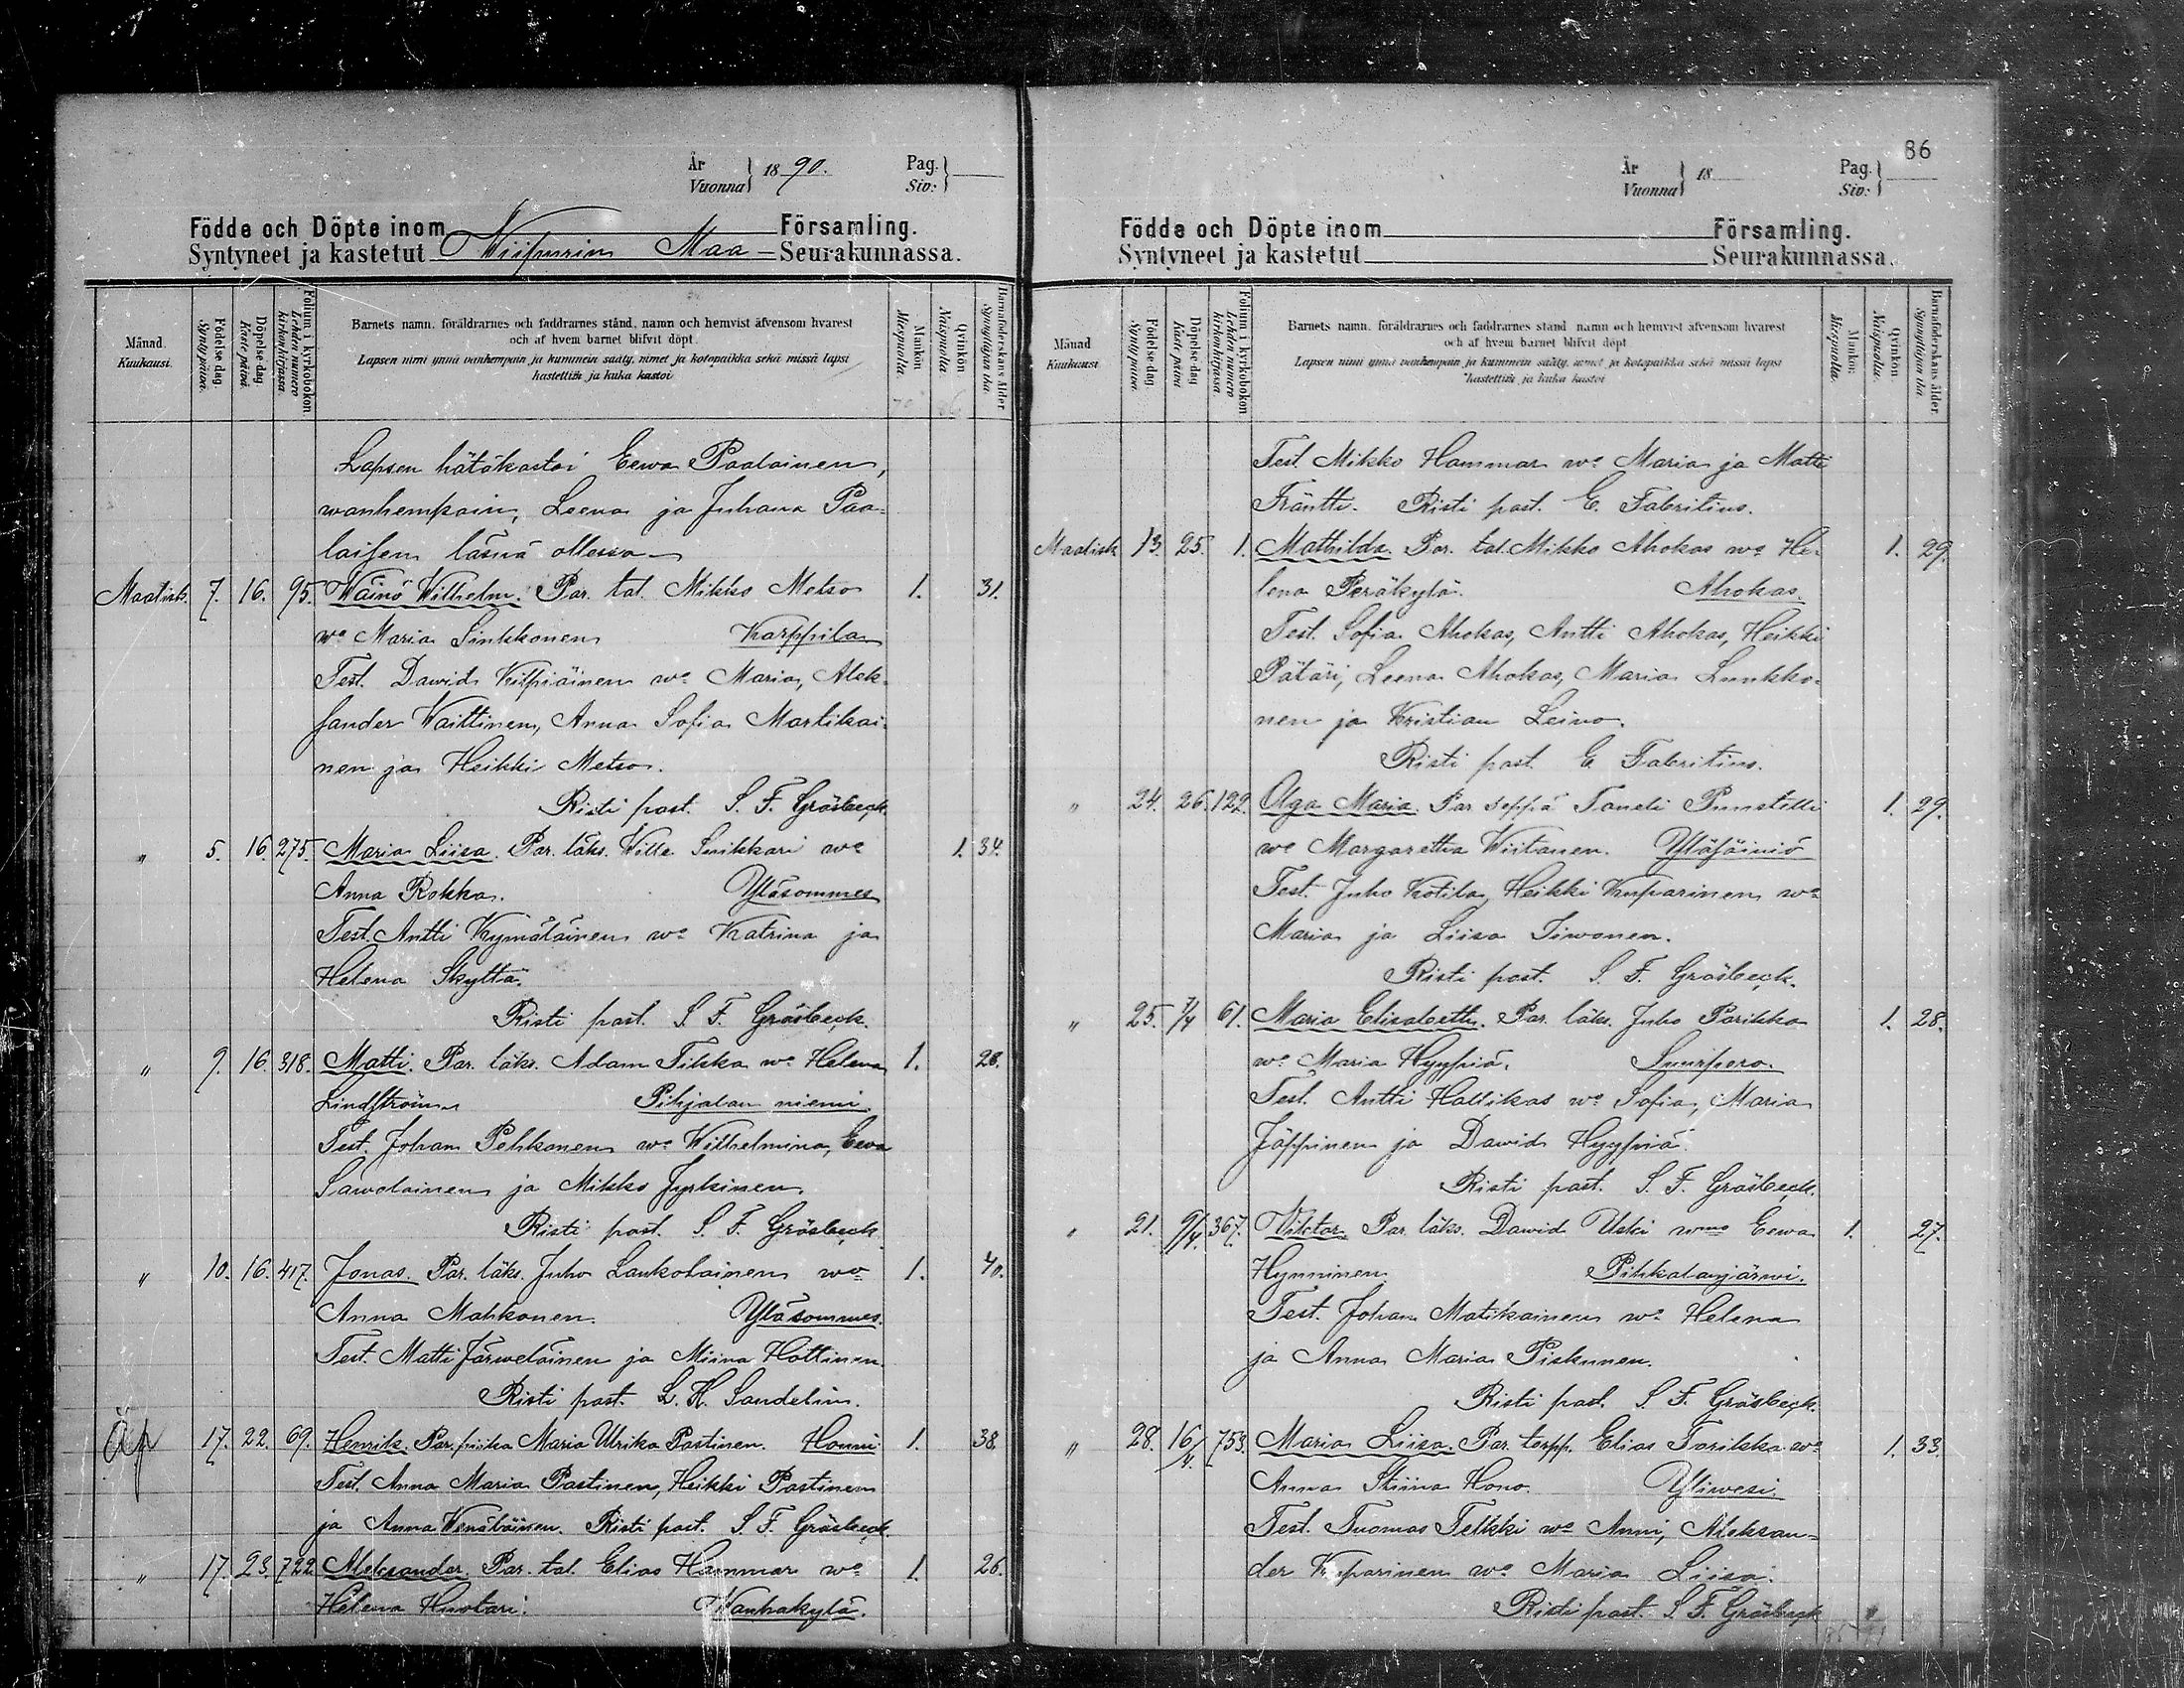 År
Vuonna 1890.
Pag.
Siv:
Födde och Döpte inom Församling.
Syntyneet ja kastetut Wiipurin Maa - Seurakunnassa.
Månad.
Kuukausi.
Födelse dag.
Syntypäivä.
Döpelse dag.
Kaste päivä.
Folium i kyrkoboken.
Lehden numero
kirkonkirjassa.
Barnets namn, föräldrarnes och faddrarnes stånd, namn och hemvist äfvensom hvarest
och af hvem barnet blifvit döpt.
Lapsen nimi ynnä vanhempain ja kummein sääty, nimet ja kotopaikka sekä missä lapsi
kastettiin ja kuka kastoi
Mankön
Miespuolia.
Qvinkön
Naispuolia.
Barnaföderskans ålder
Synnyttäjän ikä.
Lapsen hätäkastoi Eewa Paalainen,
wanhempain, Leena ja Juhana Paa-
laisen läsnä ollessa
Maalisk. 7. 16. 95. Wäinö Wilhelm. Par. tal. Mikko Metso 1. 31.
wo Maria Sinkkonen Karppila
Test. Dawid Kilpiäinen wo Maria, Alek-
sander Waittinen, Anna Sofia Martikai-
nen ja Heikki Metso.
Risti past. S. F. Gräsbeck.
" 5. 16. 275. Maria Liisa. Par. läks. Wille Suikkari wo 1. 34.
Anna Rokka. Yläsommes
Test. Antti Kymäläinen wo Katrina ja
Helena Skyttä.
Risti past. S. F. Gräsbeck.
" 9. 16. 318. Matti. Par. läks. Adam Tikka wo Helena 1. 28.
Lindström Pihjalan niemi
Test. Johan Pehkonen wo Wilhelmina, Eewa
Sawolainen ja Mikko Jyrkinen.
Risti past. S. F. Gräsbeck
" 10. 16. 417. Jonas. Par. läks. Juho Laukolainen wo 1. 40.
Anna Mahkonen. Yläsommes.
Test. Matti Järweläinen ja Miina Hottinen.
Risti past. L. H. Sandelin.
Äp 17. 22. 69. Henrik. Par. piika Maria Ulrika Pastinen. Honni 1. 38.
Test. Anna Maria Pastinen, Heikki Pastinen
ja Anna Wenäläinen. Risti past. S. F. Gräsbeck
" 17. 23. 722. Aleksander. Par. tal. Elias Hammar wo 1. 26.
Helena Huotari. Wanhakylä.
86
År
Vuonna 18
Pag.
Siv:
Födde och Döpte inom Församling.
Syntyneet ja kastetut Seurakunnassa.
Månad
Kuukausi
Födelse dag.
Syntypäivä.
Döpelse dag
Kaste päivä
Folium i kyrkoboken
Lehden numero
kirkonkirjassa
Barnets namn, föräldrarnes och faddrarnes stånd namn och hemvist äfvensom hvarest
och af hvem barnet blifvit döpt
Lapsen nimi ynnä vanhempain ja kummein sääty, nimet ja kotopaikka sekä missä lapsi
kastettiin ja kuka kastoi
Mankön:
Miespuolia.
Qvinkön.
Naispuolia.
Barnaföderskans ålder.
Synnyttäjän ikä
Test. Mikko Hammar wo Maria ja Matti
Fräntti. Risti past. E. Fabritius.
Maalisk 13. 25. 1. Mathilda. Par. tal. Mikko Ahokas wo He- 1. 29.
lena Peräkylä. Ahokas.
Test. Sofia Ahokas, Antti Ahokas, Heikki
Pätäri, Leena Ahokas, Maria Lunkko-
nen ja Kristian Leino.
Risti past. E. Fabritius.
" 24. 26. 122. Olga Maria. Par seppä Taneli Punstelli 1. 29.
wo Margaretha Wiitanen. Yläsäiniö
Test. Juho Kotila, Heikki Kuparinen wo
Maria ja Liisa Iiwonen.
Risti past. S. F. Gräsbeck.
" 25. 7/4 61. Maria Elisabeth. Par. läks. Juho Parikka 1. 28.
wo Maria Hyyppiä. Suurpero.
Test. Antti Hallikas wo Sofia, Maria
Jäppinen ja Dawid Hyyppiä.
Risti past. S. F. Gräsbeck.
" 21. 9/4. 367. Viktor. Par. läks. Dawid Uski wmo Eewa 1. 27.
Hynninen. Pihkalanjärwi.
Test. Johan Matikainen wo Helena
ja Anna Maria Piskunen.
Risti past. S. F. Gräsbeck.
" 28. 16/4. 753. Maria Liisa. Par. torpp. Elias Torikka wo 1. 33.
Anna Stiina Hono. Yliwesi.
Test. Tuomas Telkki wo Anni, Aleksan-
der Kuparinen wo Maria Liisa.
Risti past. S. F. Gräsbeck